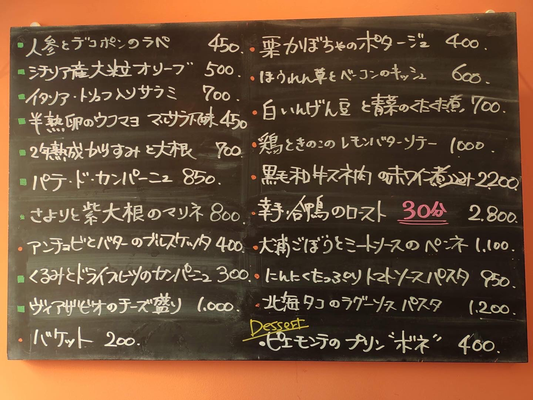 人参とデコポンのラペ 450.
シチリア産大粒オリーブ 500.
イタリア・トリュフ入りサラミ 700.
半熟卵のウフマヨ マッサラ風味 450
2年熟成からすみと大根 700.
パテ・ド・カンパーニュ 850.
さよりと紫大根のマリネ 800.
アンチョビとバターのブルスケッタ 400.
くるみとドライフルーツのカンパーニュ 300.
ヴィアザビオのチーズ盛り 1.000.
バケット 200.
栗かぼちゃのポタージュ 400.
ほうれん草とベーコンのキッシュ 600.
白いんげん豆と青菜のくたくた煮 700.
鶏ときのこのレモンバターソテー 1000.
黒毛和牛スネ肉の赤ワイン煮込み 2,200.
鴨のロースト 30分 2.800.
大浦ごぼうとミートソースのペンネ 1,100.
にんにくたっぷりトマトソースパスタ 950.
北海タコのラグーソースパスタ 1.200.
Dessert
・ピエモンテのプリン"ボネ" 400.